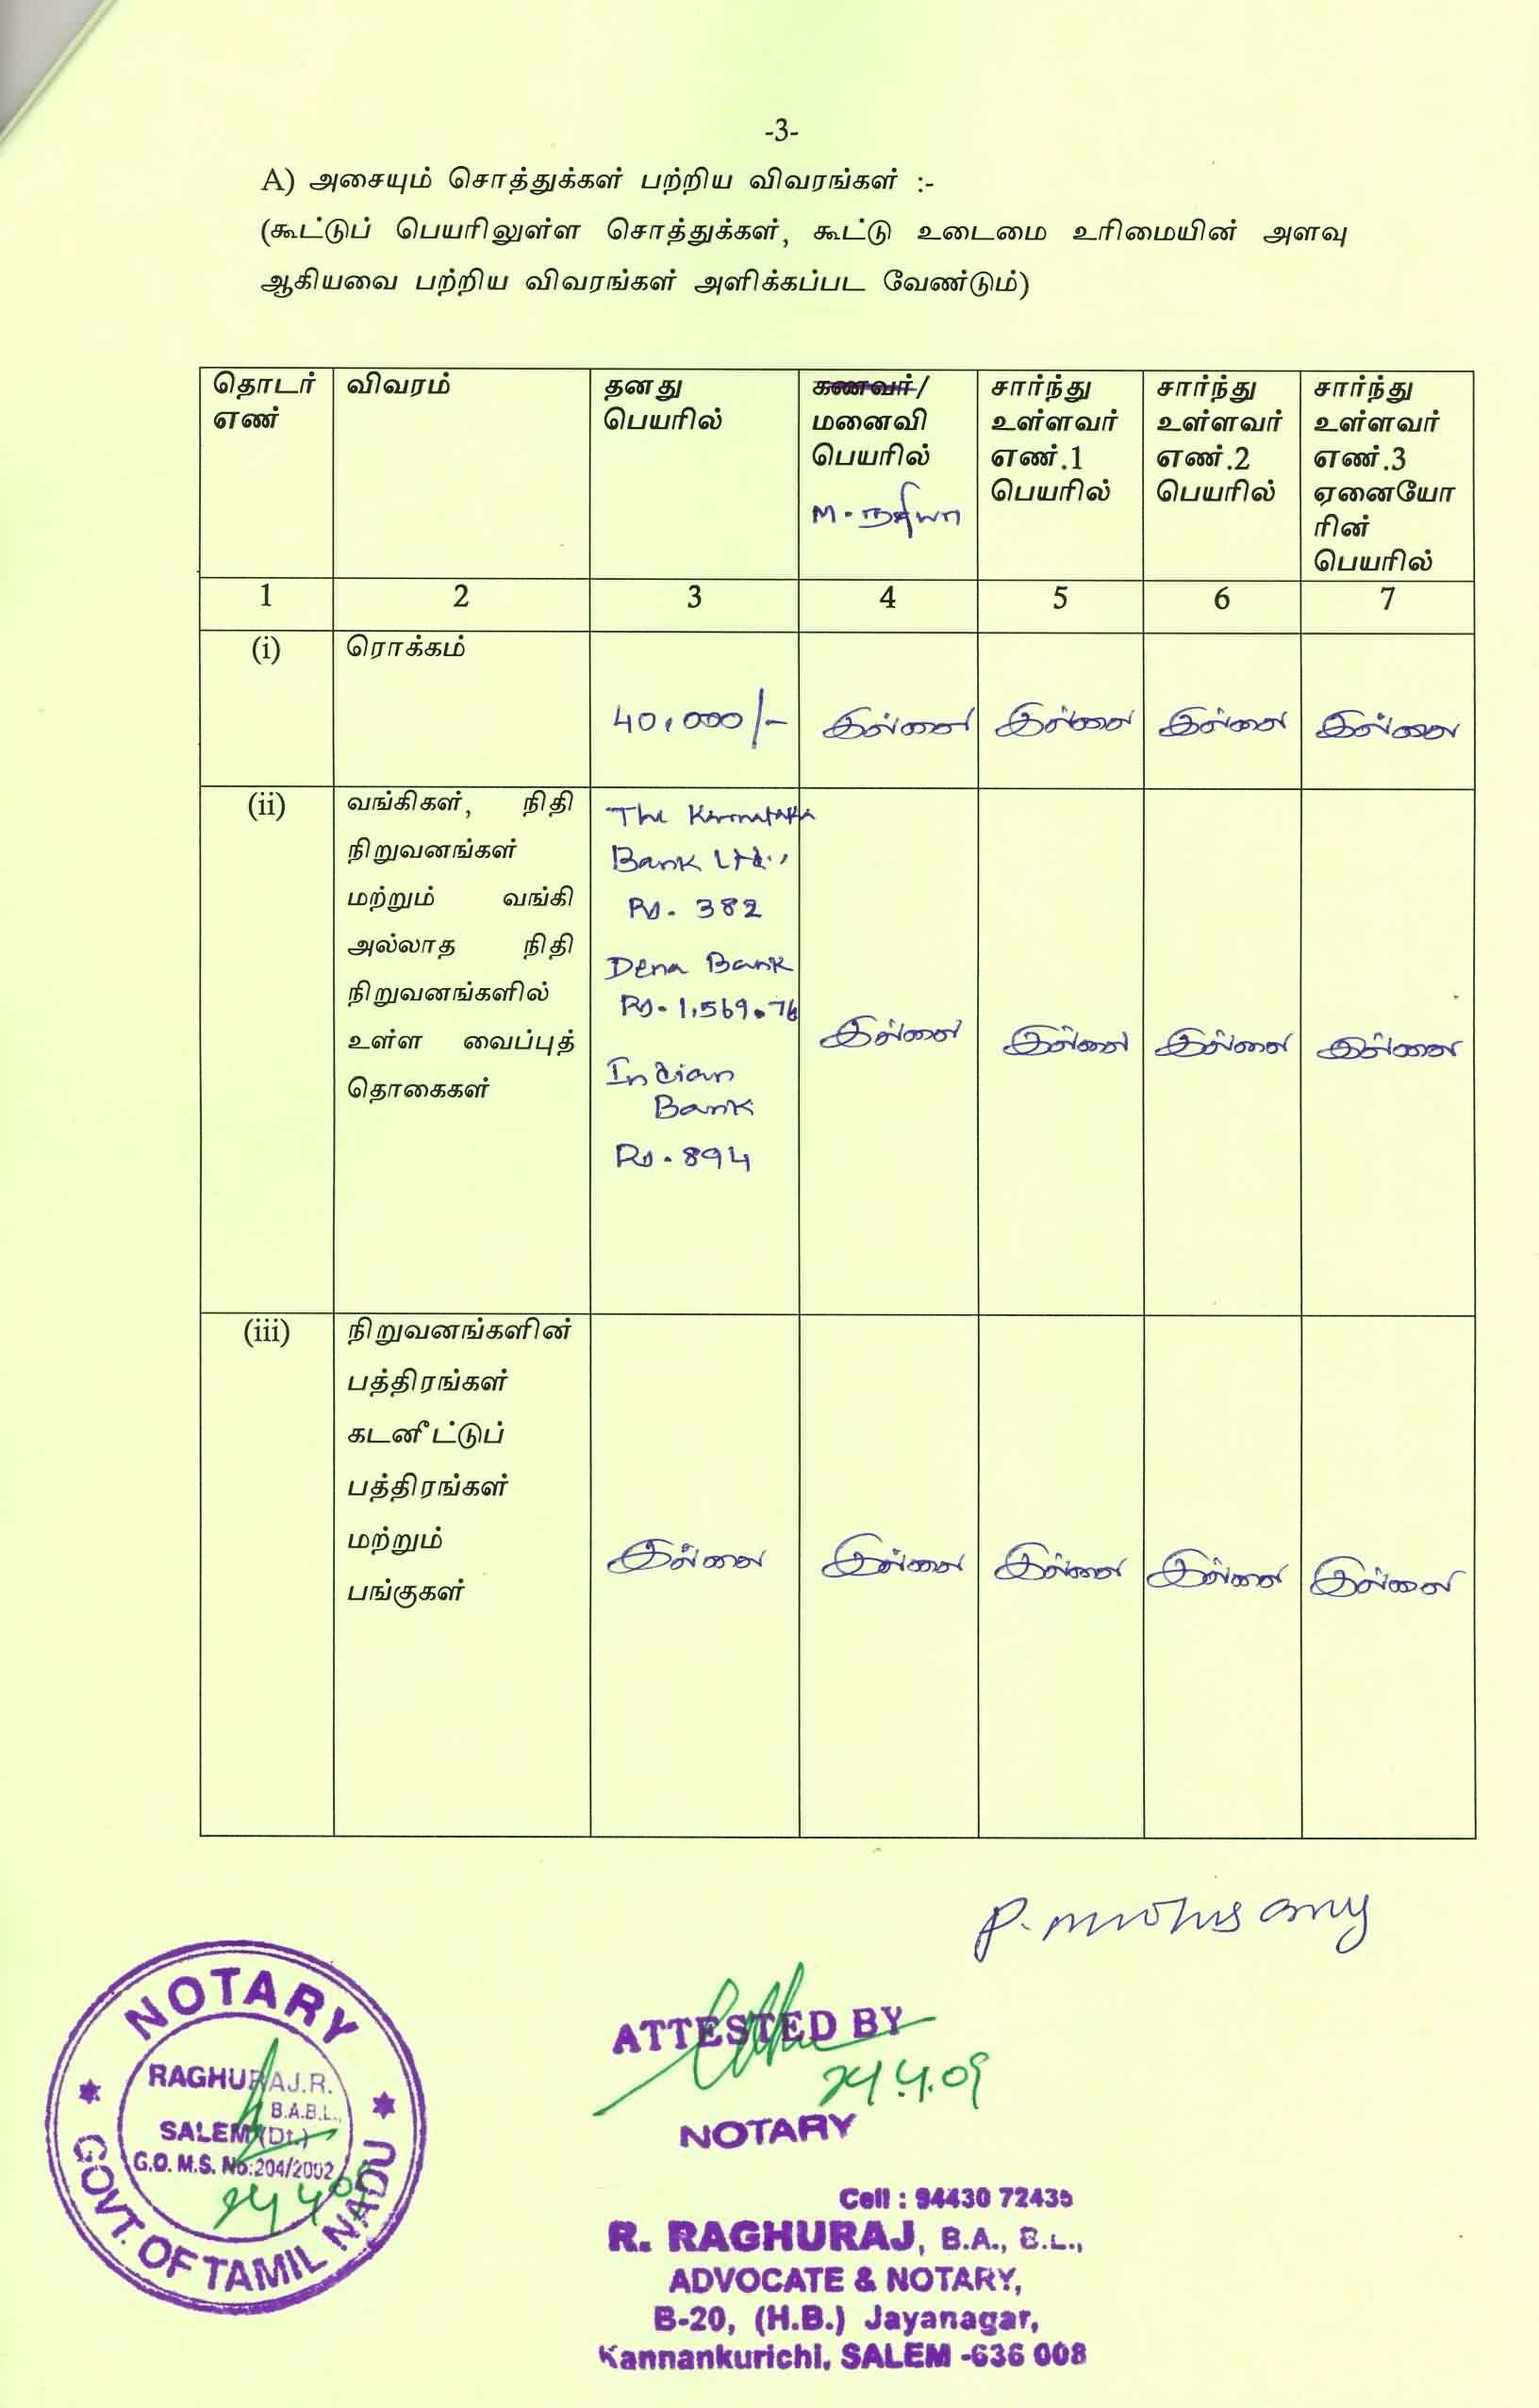 -3-
A) அசையும் சொத்துக்கள் பற்றிய விவரங்கள் :-
(கூட்டுப் பெயரிலுள்ள சொத்துக்கள், கூட்டு உடைமை உரிமையின் அளவு
ஆகியவை பற்றிய விவரங்கள் அளிக்கப்பட வேண்டும்)
தொடர் எண்
விவரம்
தனது பெயரில்
கணவர்/ மனைவி பெயரில்
M.
சார்ந்து உள்ளவர் எண்.1 பெயரில்
சார்ந்து உள்ளவர் எண்.2 பெயரில்
சார்ந்து உள்ளவர் எண்.3 ஏனையோரின் பெயரில்
1 2 3 4 5 6 7
(i) ரொக்கம்
40,000/- இல்லை இல்லை இல்லை இல்லை
(ii)
வங்கிகள், நிதி
நிறுவனங்கள்
மற்றும் வங்கி
அல்லாத நிதி
நிறுவனங்களில்
உள்ள வைப்புத்
தொகைகள்
The Karnataka
Bank Ltd.,
Rs. 382
Dena Bank
Rs. 1,569.76
Indian
Bank
Rs. 894
இல்லை இல்லை இல்லை இல்லை
(iii)
நிறுவனங்களின்
பத்திரங்கள்
கடனீட்டுப்
பத்திரங்கள்
மற்றும்
பங்குகள்
இல்லை இல்லை இல்லை இல்லை இல்லை
NOTARY
RAGHURAJ.R.
B.A.B.L.,
SALEM (Dt.)
G.O. M.S. No:204/2002
GOVT. OF TAMIL NADU
24.4.09
ATTESTED BY
24.4.09
NOTARY
Cell : 94430 72435
R. RAGHURAJ, B.A., B.L.,
ADVOCATE & NOTARY,
B-20, (H.B.) Jayanagar,
Kannankurichi, SALEM -636 008